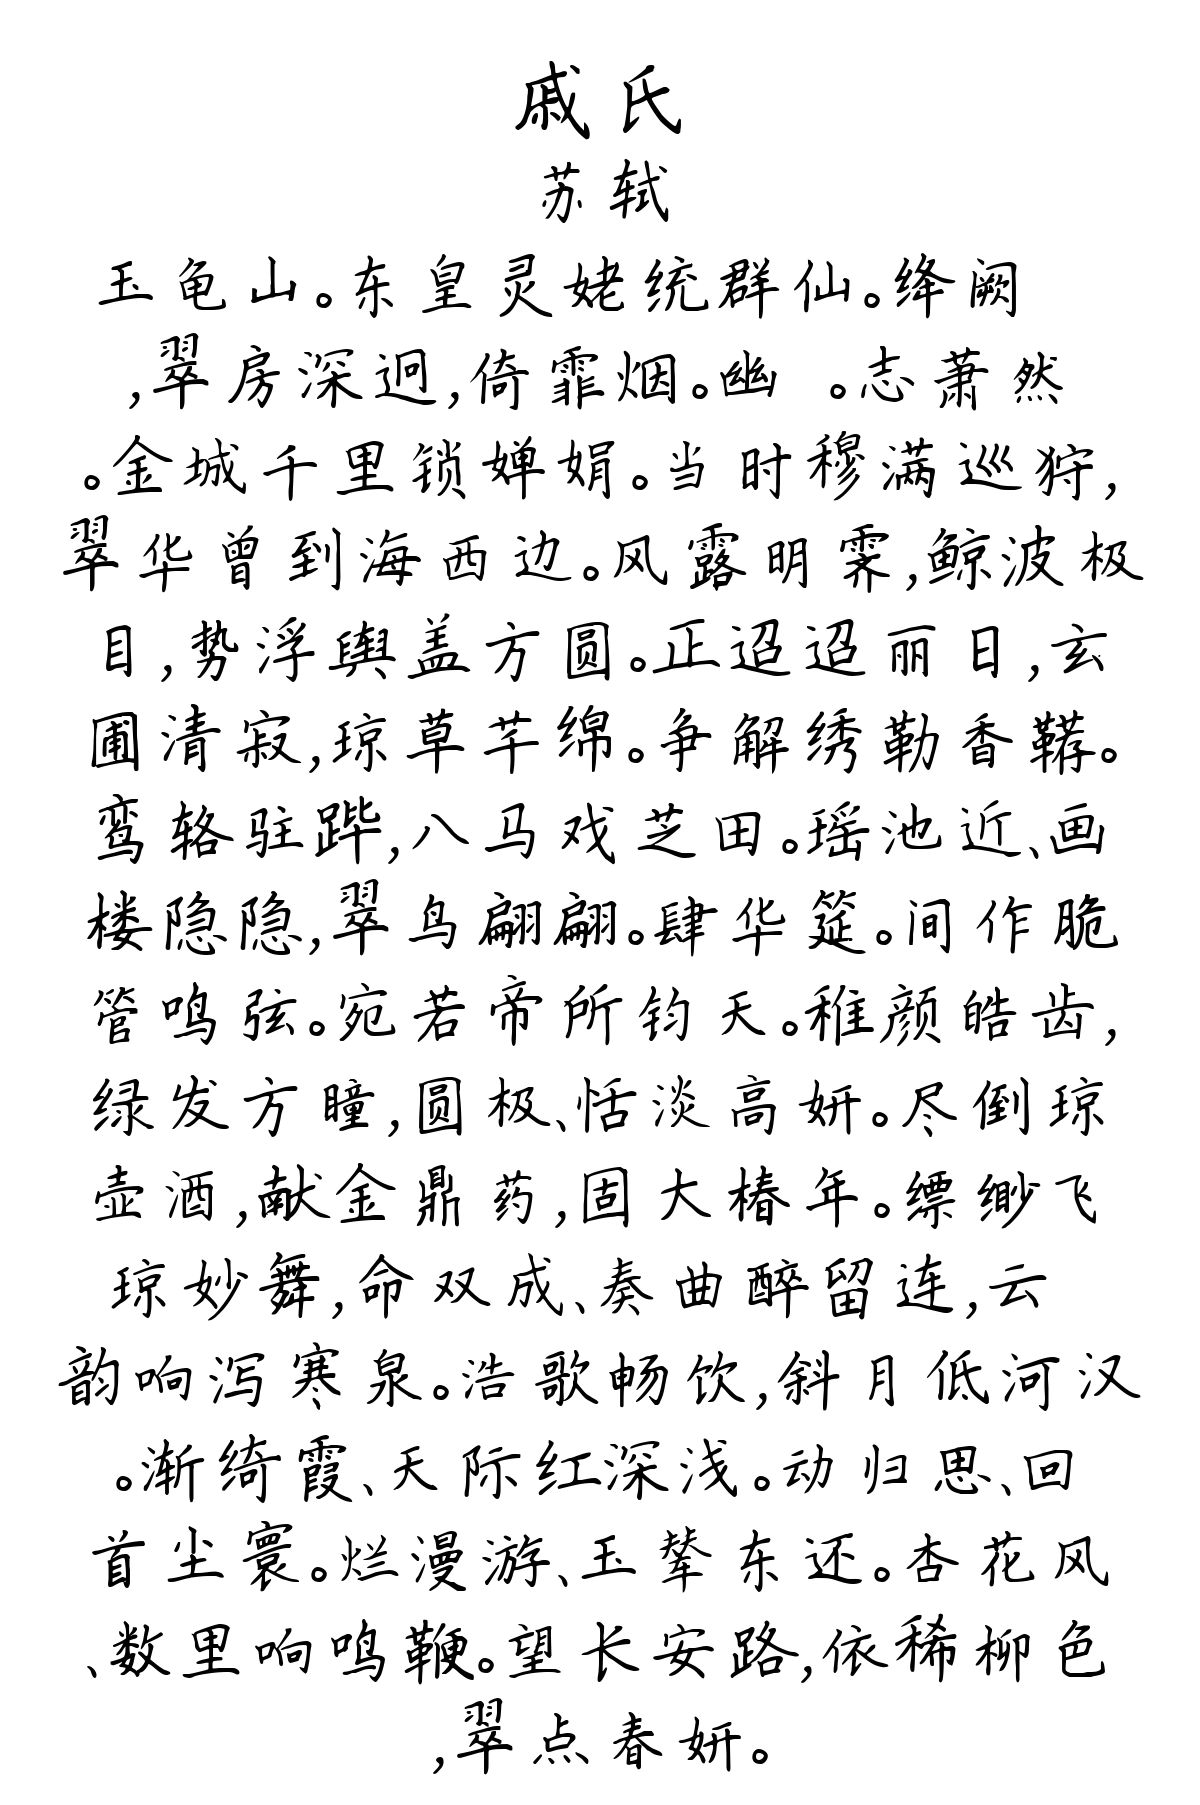 戚氏
苏轼
玉龟山。东皇灵姥统群仙。绛阙
,翠房深迥,倚霏烟。幽 。志萧然
。金城千里锁婵娟。当时穆满巡狩,
翠华曾到海西边。风露明霁,鲸波极
目,势浮舆盖方圆。正迢迢丽日,玄
圃清寂,琼草芊绵。争解绣勒香鞯。
鸾辂驻跸,八马戏芝田。瑶池近、画
楼隐隐,翠鸟翩翩。肆华筵。间作脆
管鸣弦。宛若帝所钧天。稚颜皓齿,
绿发方瞳,圆极、恬淡高妍。尽倒琼
壶酒,献金鼎药,固大椿年。缥缈飞
琼妙舞,命双成、奏曲醉留连,云
韵响泻寒泉。浩歌畅饮,斜月低河汉
。渐绮霞、天际红深浅。动归思、回
首尘寰。烂漫游、玉辇东还。杏花风
、数里响鸣鞭。望长安路,依稀柳色
,翠点春妍。